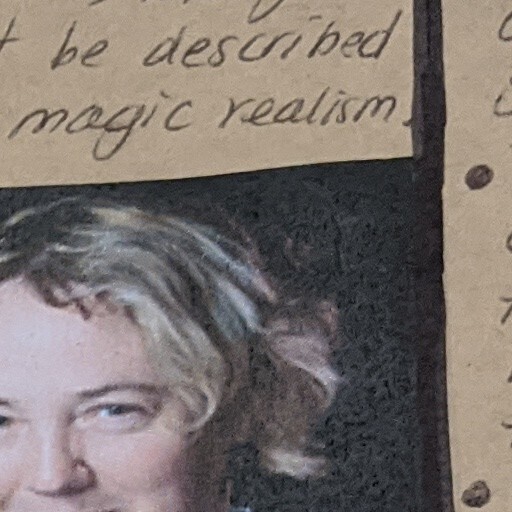 be described
magic realism.